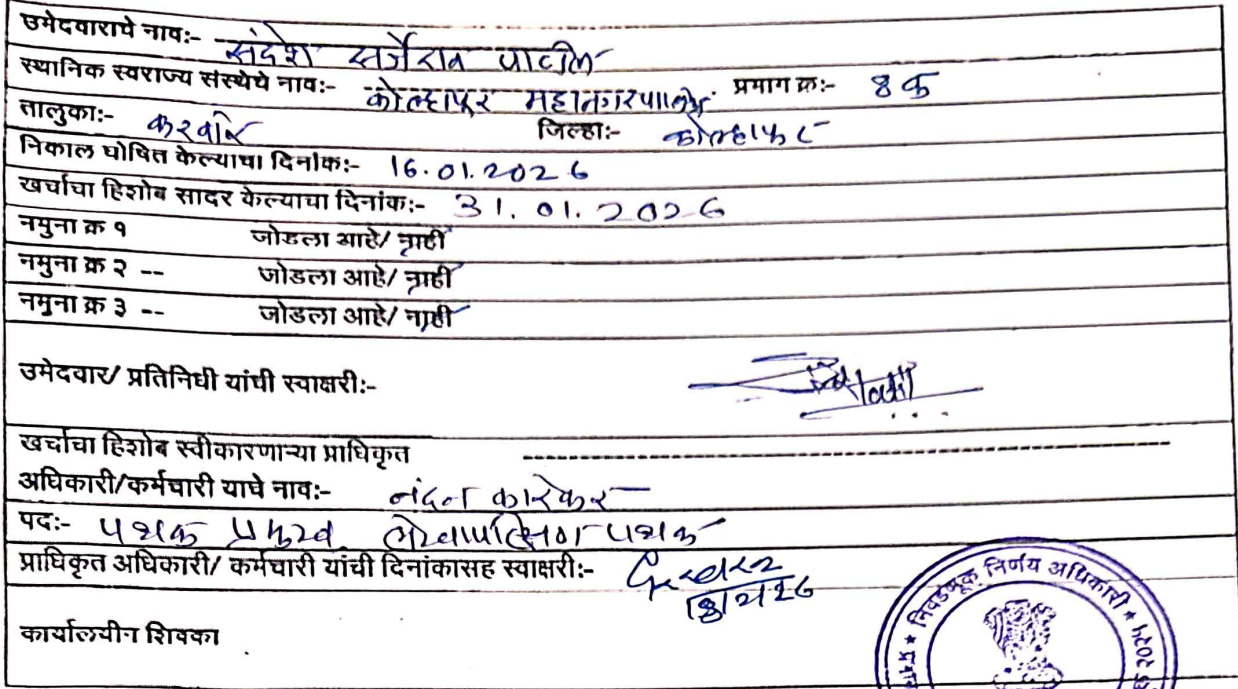 उमेदवाराचे नाव:- संदेश सर्जेराव पाटील
स्थानिक स्वराज्य संस्थेचे नाव:- कोल्हापूर महानगरपालिका प्रमाग क्र:- 8 क
तालुका:- करवीर जिल्हा:- कोल्हापूर
निकाल घोषित केल्याचा दिनांक:- 16.01.2026
खर्चाचा हिशोब सादर केल्याचा दिनांक:- 31.01.2026
नमुना क्र १ जोडला आहे/ नाही
नमुना क्र २ -- जोडला आहे/ नाही
नमुना क्र ३ -- जोडला आहे/ नाही
उमेदवार/ प्रतिनिधी यांची स्वाक्षरी:-
खर्चाचा हिशोब स्वीकारणाऱ्या प्राधिकृत
अधिकारी/कर्मचारी याचे नाव:- नंदन कारेकर
पदः- पथक प्रमुख लेखापरिक्षण पथक
प्राधिकृत अधिकारी/ कर्मचारी यांची दिनांकासह स्वाक्षरी:-
कार्यालयीन शिक्का
निवडणूक निर्णय अधिकारी